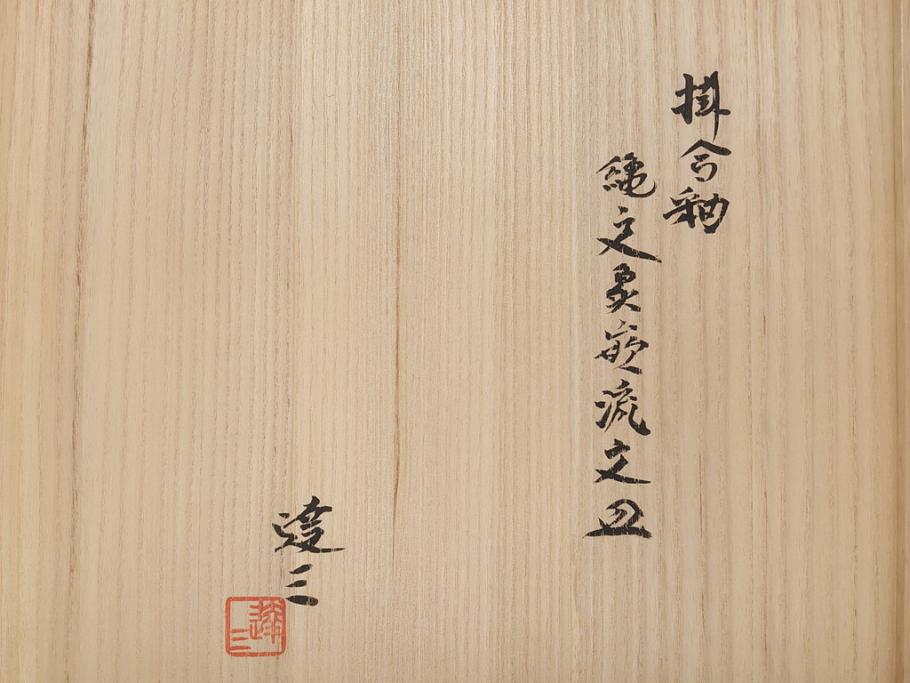 掛合釉
縄文象嵌流文皿
達三
達三